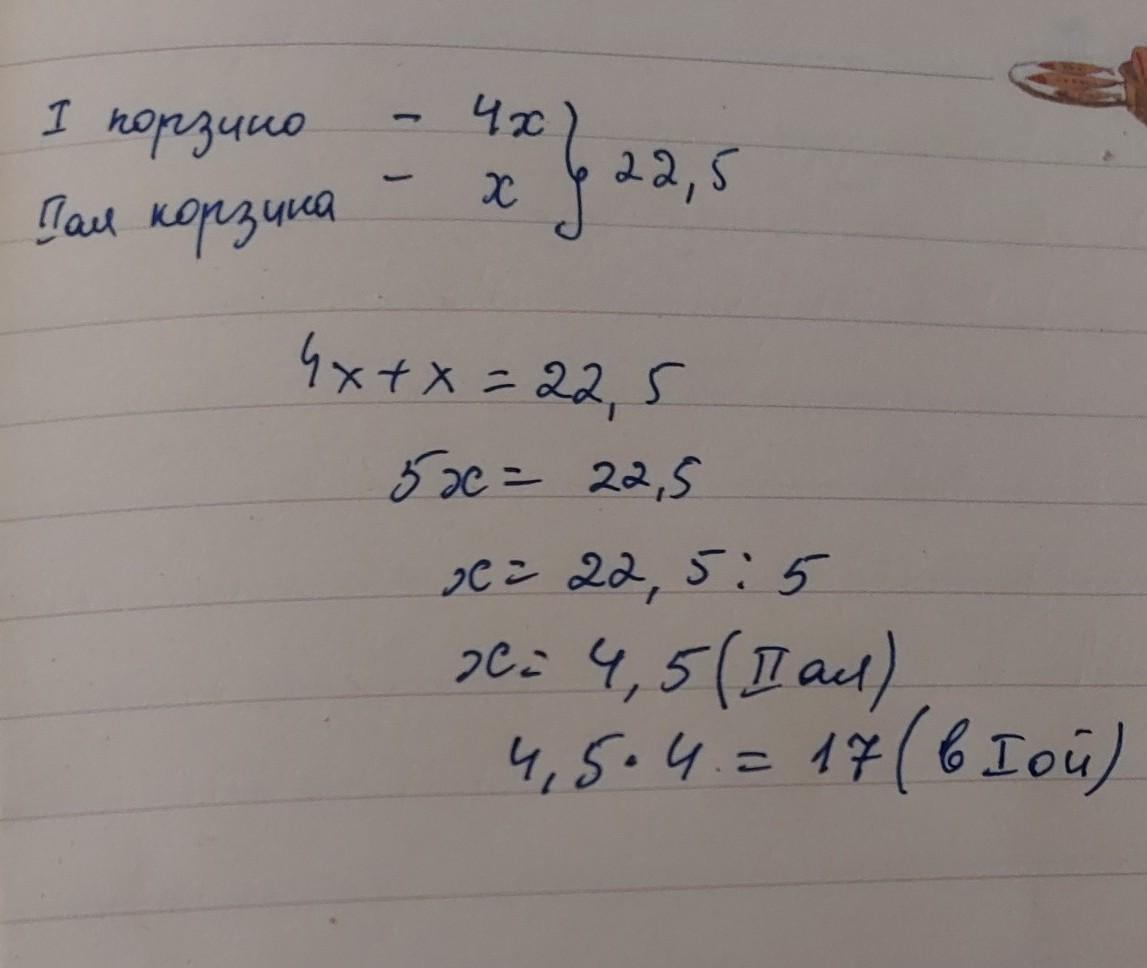 I корзино - 4x } 22,5
IIая корзина - x
4x + x = 22,5
5x = 22,5
x = 22,5 : 5
x = 4,5 (II ая)
4,5 · 4 = 17 (в I ой)